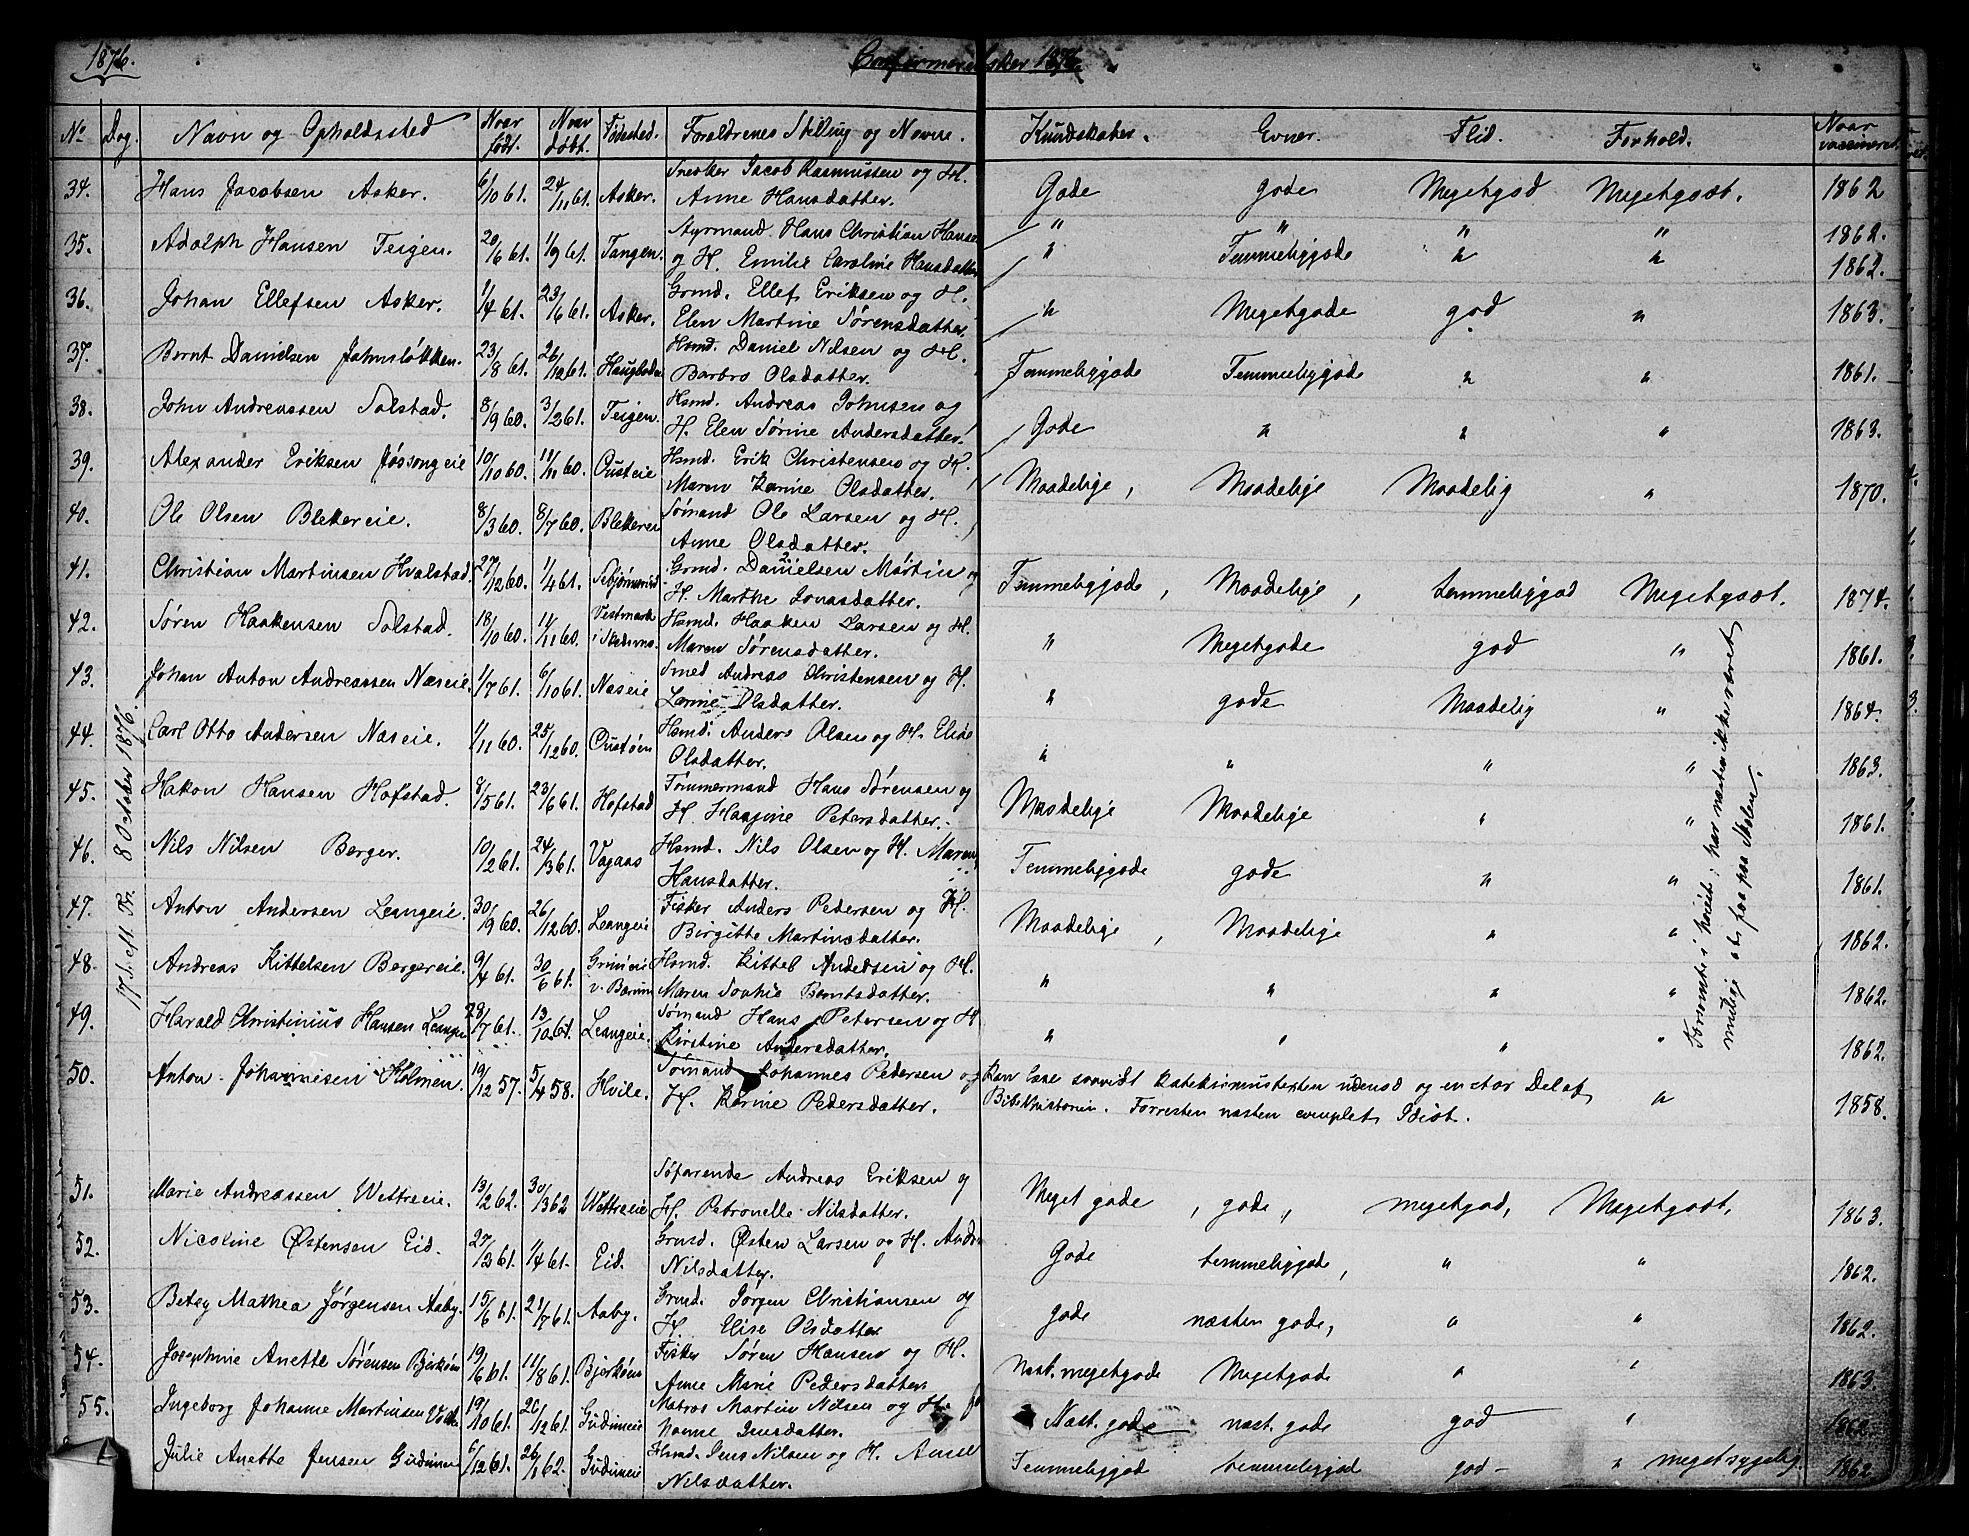 1876. Confirmerede Asker 1876.
No Dag. Navn og Opholdssted Naar født. Naar døbt. Fødested. Forældrenes Stilling og Navne. Kundskaber. Evner. Flid. Forhold. Naar vaccineret.
17th eft. Tr. 8 October 1876.
34. Hans Jacobsen Asker. 6/10 61. 24/11 61. Asker. Snedker Jacob Rasmussen og H. Gode gode Megetgod Megetgodt. 1862
Anne Hansdatter.
35. Adolph Hansen Teigen. 20/6 61. 1/9 61. Tangen. Styrmand Hans Christian Hansen " " " " 1862.
og H. Emilie Caroline Hansdatter " Temmeliggode " " 1862.
36. Johan Ellefsen Asker. 1/4 61. 23/6 61. Asker. Grmd. Ellef Eriksen og H. " Megetgode god " 1863.
Elen Martine Sørensdatter.
37. Bernt Danielsen Johnsløkken. 23/8 61. 26/12 61. Haugboden Hsmd. Daniel Nilsen og H. Temmeliggode Temmeliggode " " 1861.
Barbro Olsdatter.
38. John Andreassen Solstad. 8/9 60. 3/2 61. Teigen. Hsmd. Andreas Johnsen og Gode " " " 1863.
H. Elen Sørine Andersdatter.
39. Alexander Eriksen Jøssongeie 10/10 60. 11/11 60. Ousteie Hsmd. Erik Christensen og H. Maadelige, Maadelige Maadelig " 1870.
Maren Karine Olsdatter.
40. Ole Olsen Blekereie. 8/3 60. 8/7 60. Blekeren Sømand Ole Larsen og H.
Anne Olsdatter.
41. Christian Martinsen Hvalstad. 27/12 60. 1/4 61. Grmd. Danielsen Martin og Temmeliggode, Maadelige, temmeliggod Megetgodt. 1874.
H. Marthe Jonasdatter.
42. Søren Haakensen Solstad. 18/10 60. 11/11 60. Vestmark Hsmd. Haaken Larsen og H. " Megetgode god " 1861.
i Skedsmo. Maren Sørensdatter.
43. Johan Anton Andreassen Næseie. 1/7 61. 6/10 61. Næseie Smed Andreas Christensen og H. " gode Maadelig " 1864.
Larine Olsdatter.
44. Carl Otto Andersen Næseie. 1/11 60. 25/12 60. Oustøen Hsmd. Anders Olsen og H. Elise " " " " 1863.
Olsdatter.
45. Hakon Hansen Hofstad. 8/5 61. 23/6 61. Hofstad Tømmermand Hans Sørensen og Maadelige Maadelige " " 1861.
H. Haagine Petersdatter.
46. Nils Nilsen Berger. 10/2 61. 24/3 61. Vøgaas Hsmd. Nils Olsen og H. Maren Temmeliggode gode " " 1861.
Hansdatter.
47. Anton Andersen Leangeie. 30/9 60. 26/12 60. Leangeie Fisker Anders Pedersen og H. Maadelige, Maadelige " " 1862.
Birgitte Martinsdatter.
48. Andreas Kittelsen Bergereie. 9/4 61. 30/6 61. Grinieie Hsmd. Kittel Andersen og H. " " " " 1862.
v. Bærum Maren Sophie Berntsdatter.
49. Harald Christinius Hansen Leangen 23/7 61. 13/10 61. Leangeie. Sømand Hans Petersen og H. " " " " 1862.
Kirstine Andersdatter.
Forsømte i høiest; har næsten ikke været
mulig at faa paa Skolen.
50. Anton Johannesen Holmen. 19/12 57. 5/4 58. Hvile. Sømand Johannes Pedersen og Kan læse saavidt Katekismusteksten udenad og en stor Del af " 1858.
H. Karine Pedersdatter. Bibelhistorien. Forresten næsten complet Idiot.
51. Marie Andreassen Wettreeie. 13/2 62. 30/3 62 Wettreeie Søfarende Andreas Eriksen og Meget gode, gode, megetgod, Megetgodt, 1863.
H. Petronelle Nilsdatter.
52. Nicoline Østensen Eid. 27/2 61. 1/4 61. Eid. Grmd. Østen Larsen og H. Gode temmeliggode, " " 1862.
Nilsdatter.
53. Betsy Mathea Jørgensen Aaby. 15/6 61. 21/7 61. Aaby. Grmd. Jørgen Christiansen og gode næsten gode, " " 1862.
H. Elise Olsdatter
54. Josephine Anette Sørensen Bjerkøen 19/6 61. 11/8 61. Bjerkøen Fisker Søren Hansen og H. Næst. megetgode Megetgode " " 1863.
Anne Marie Pedersdatter.
55. Ingeborg Johanne Martinsen 19/10 61. 26/12 61. Gudimeie Matros Martin Nilsen og H. Næst. gode næst. gode god " 1862.
Jensdatter.
Julie Anette Jensen Gudimeie 6/12 61. 26/1 62. Gudimeie Hsmd. Jens Nilsen og H. Anne Temmeliggod temmeliggod god - " meget sygelig. 1862
Nilsdatter.